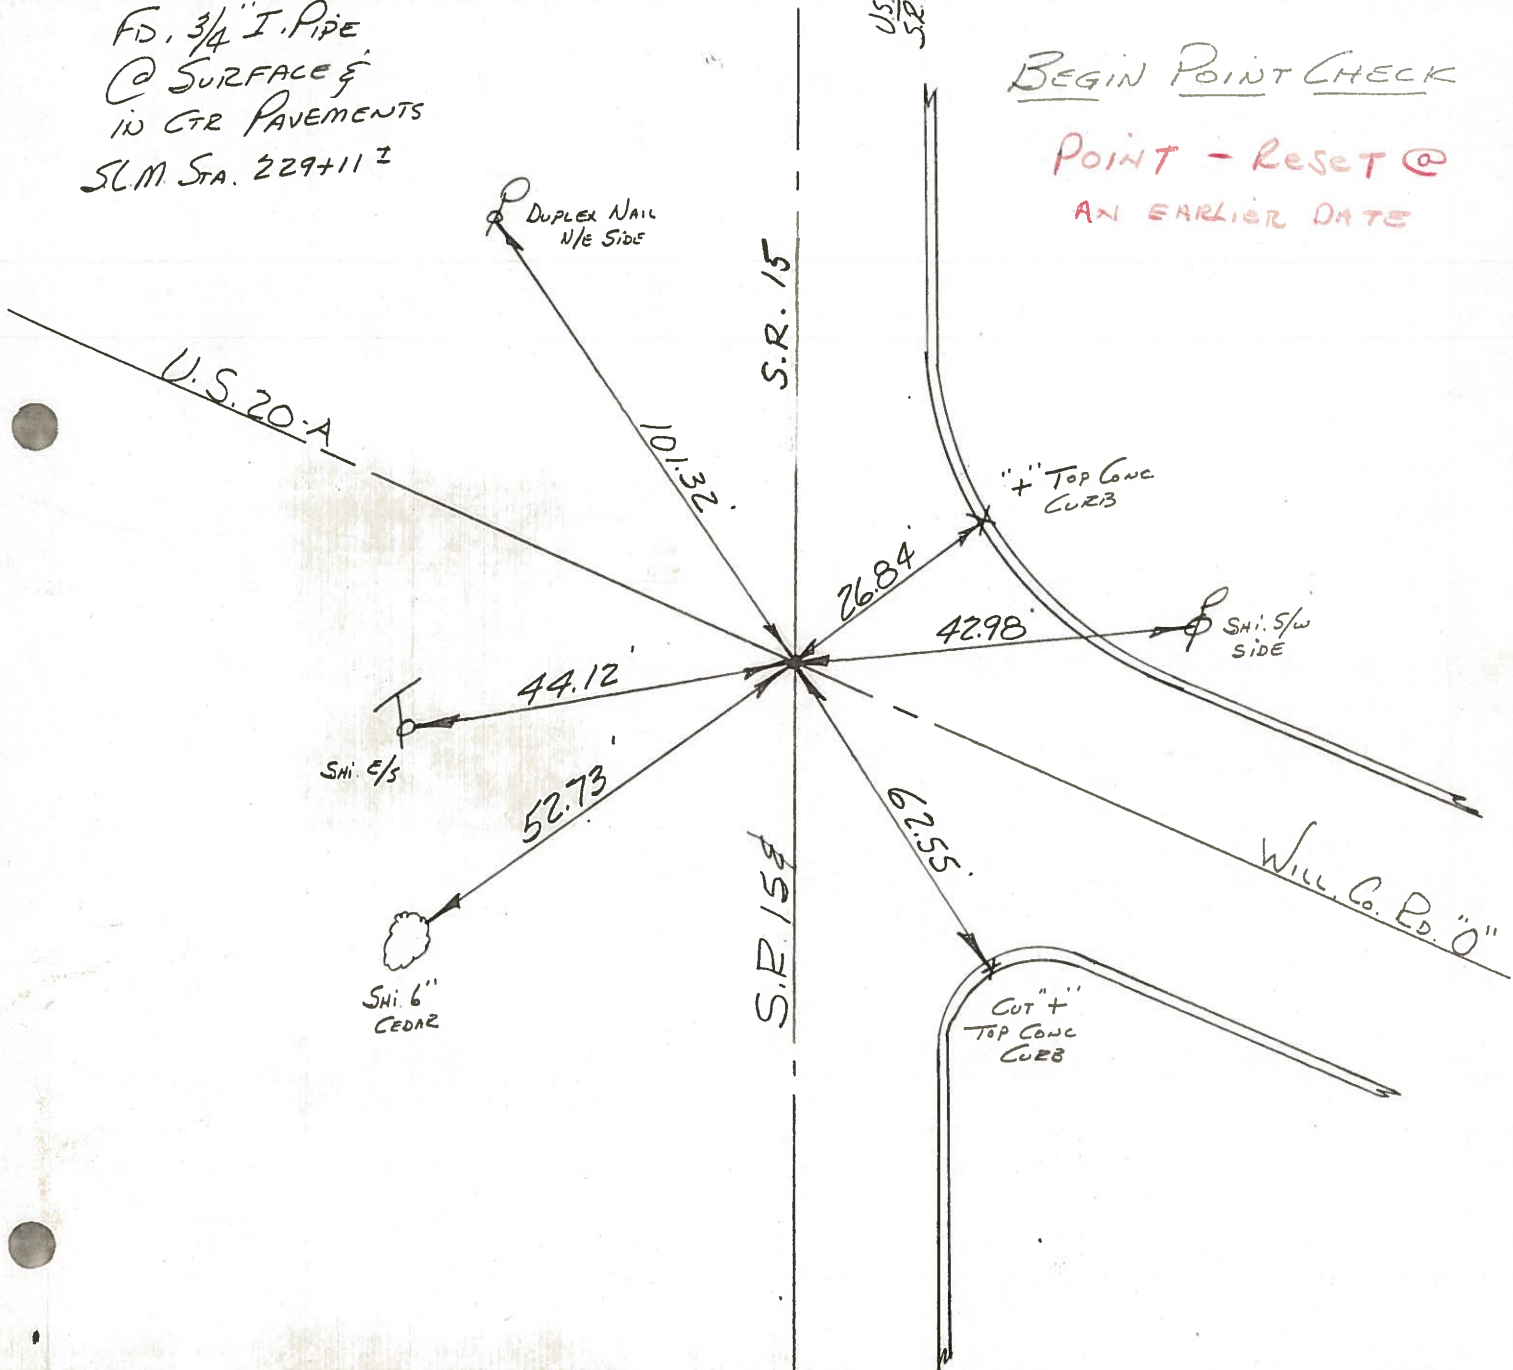 FD. 3/4" I. PIPE
@ SURFACE &
IN CTR PAVEMENTS
SLM STA. 229+11±
U.S.
S.R.
BEGIN POINT CHECK
POINT - RESET @
AN EARLIER DATE
DUPLEX NAIL
N/E SIDE
S.R. 15
U.S. 20-A
101.32'
"+" TOP CONC
CURB
26.84'
42.98'
SHI. S/W
SIDE
44.12'
SHI. E/S
52.73'
62.55'
S.R. 15
WILL. CO. RD. "O"
SHI. 6"
CEDAR
CUT "+"
TOP CONC
CURB